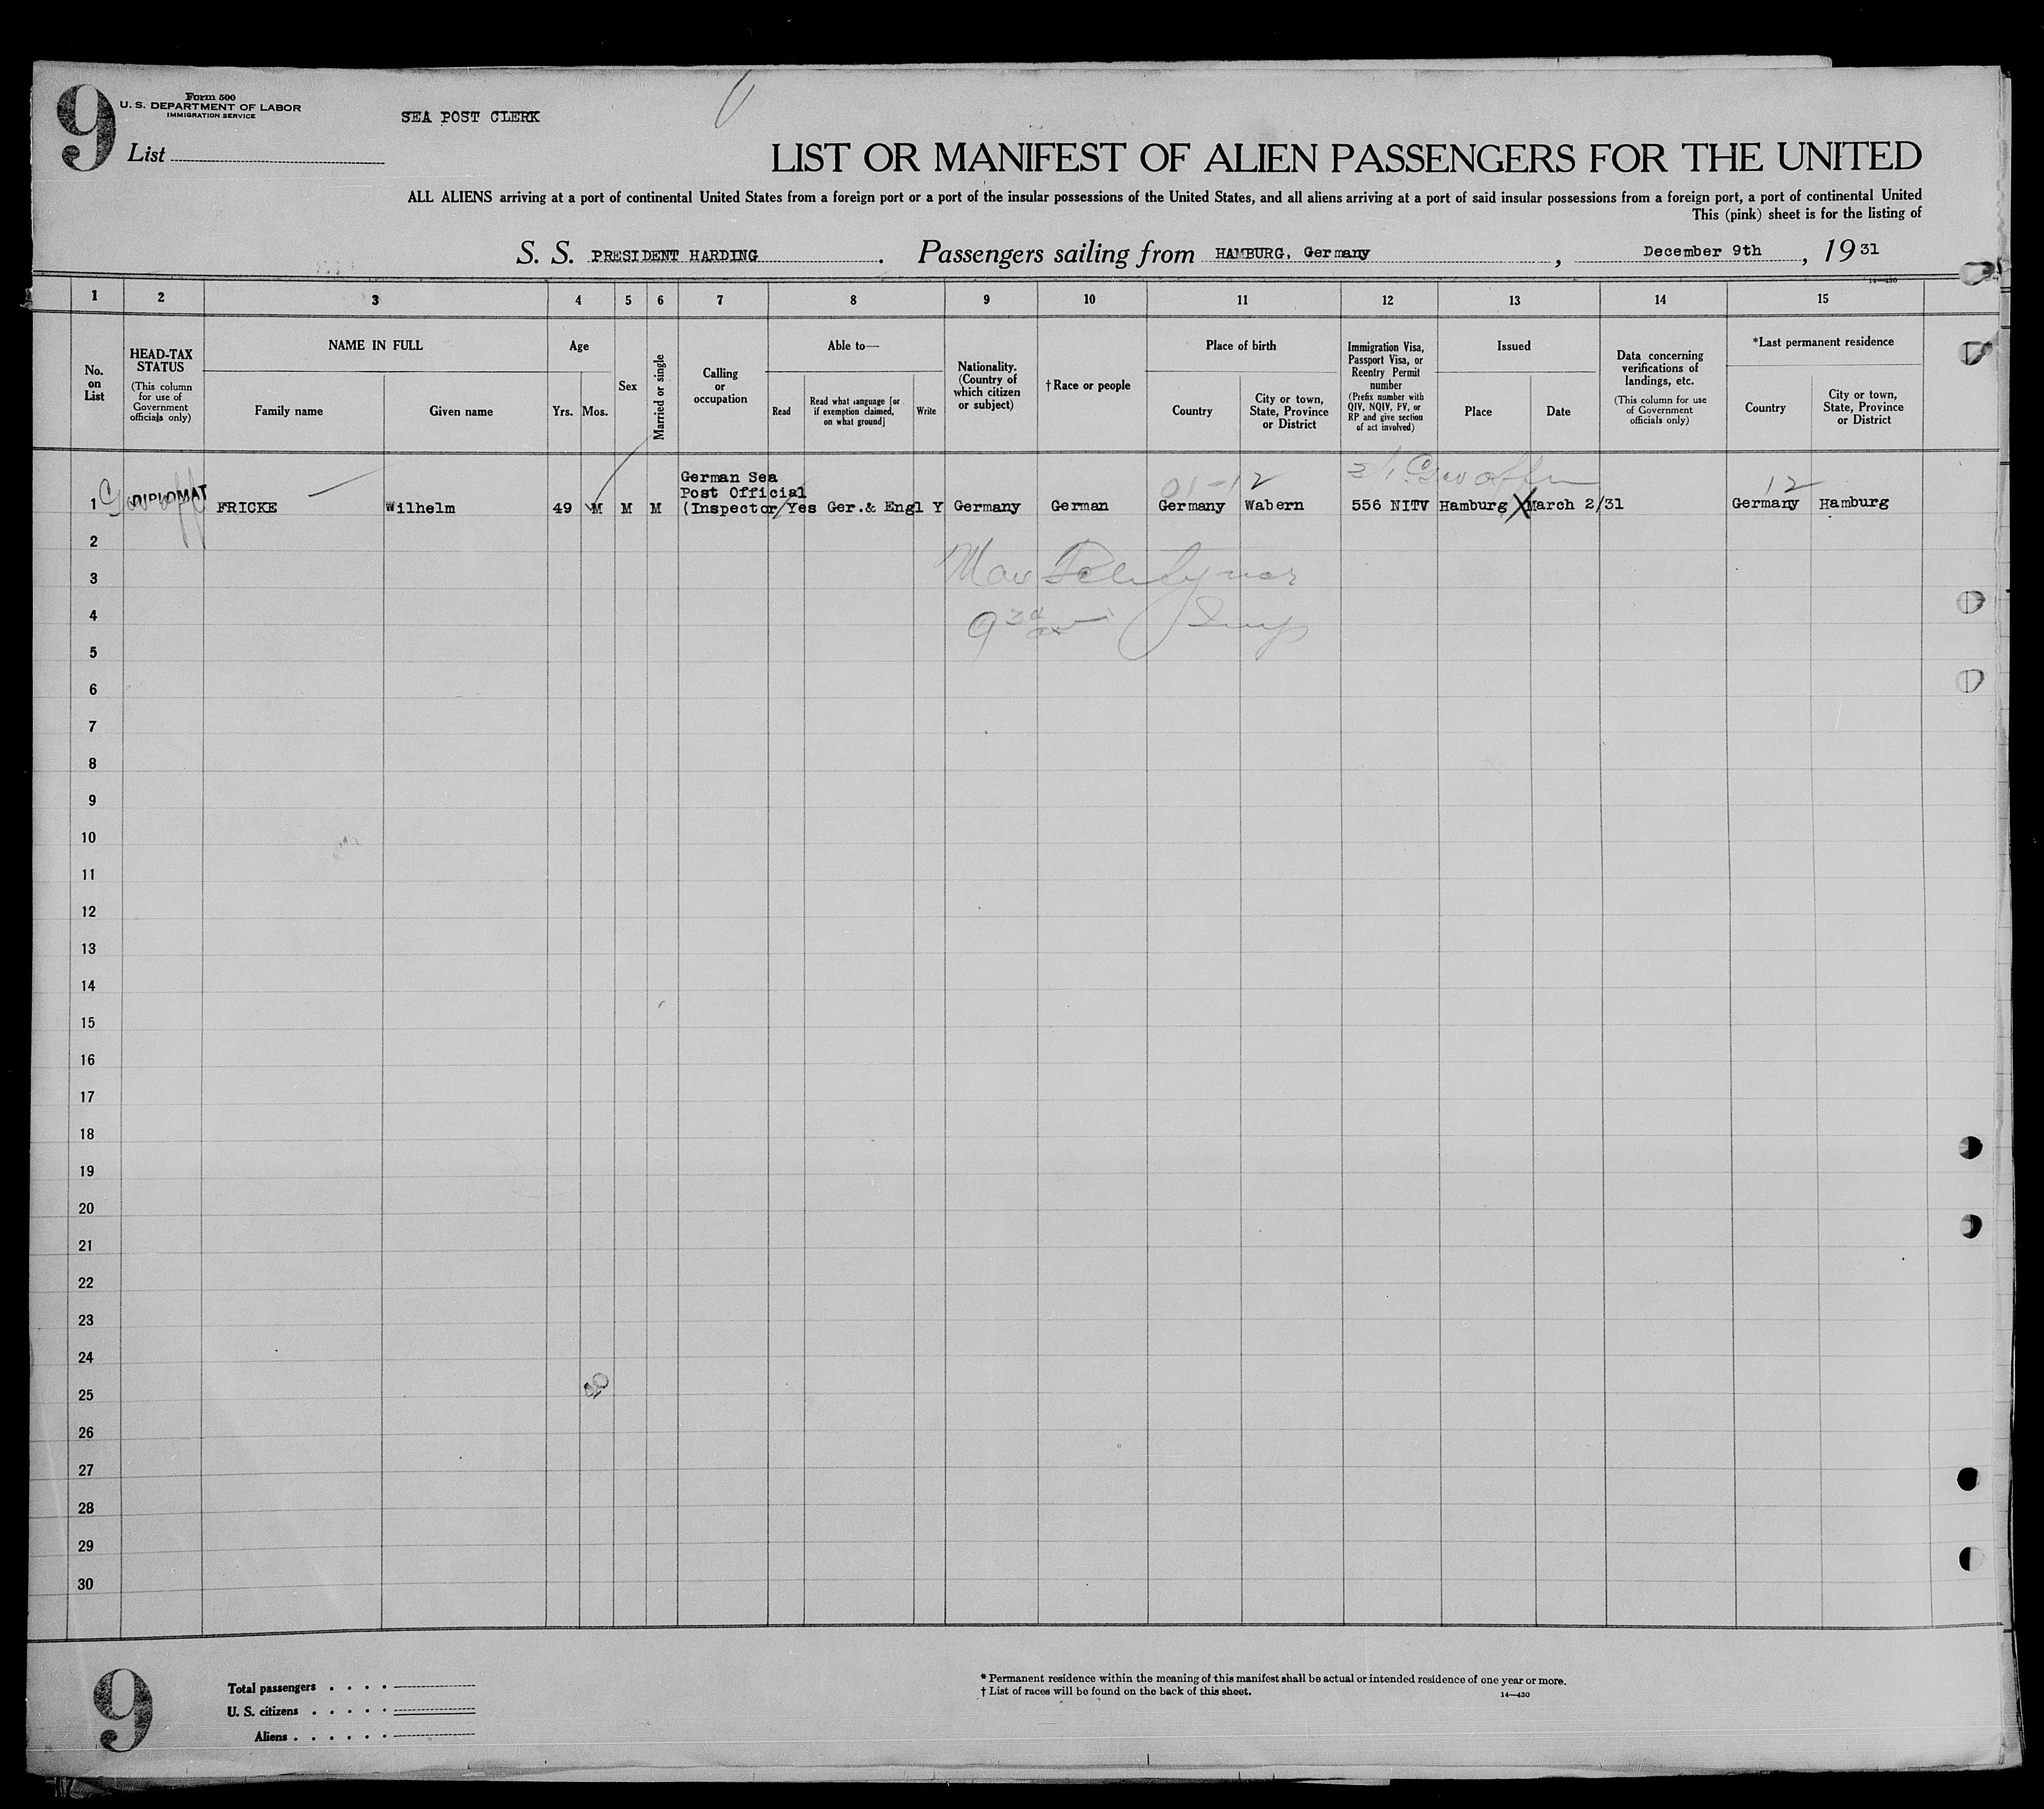 9
Form 500
U. S. DEPARTMENT OF LABOR
IMMIGRATION SERVICE
SEA POST CLERK
List
LIST OR MANIFEST OF ALIEN PASSENGERS FOR THE UNITED
ALL ALIENS arriving at a port of continental United States from a foreign port or a port of the insular possessions of the United States, and all aliens arriving at a port of said insular possessions from a foreign port, a port of continental United
This (pink) sheet is for the listing of
S. S. PRESIDENT HARDING . Passengers sailing from HAMBURG, Germany , December 9th , 1931
14—430
1 2 3 4 5 6 7 8 9 10 11 12 13 14 15
No. on List
HEAD-TAX STATUS
(This column for use of Government officials only)
NAME IN FULL
Family name
Given name
Age
Yrs.
Mos.
Sex
Married or single
Calling or occupation
Able to—
Read
Read what language [or if exemption claimed, on what ground]
Write
Nationality. (Country of which citizen or subject)
†Race or people
Place of birth
Country
City or town, State, Province or District
Immigration Visa, Passport Visa, or Reentry Permit number
(Prefix number with QIV, NQIV, PV, or RP and give section of act involved)
Issued
Place
Date
Data concerning verifications of landings, etc.
(This column for use of Government officials only)
*Last permanent residence
Country
City or town, State, Province or District
01-12
12
German Sea
Post Official
1 Gov off DIPLOMAT FRICKE Wilhelm 49 M M M (Inspector Yes Ger.& Engl Y Germany German Germany Wabern 556 NITV Hamburg X March 2/31 Germany Hamburg
2
3
4
5
6
7
8
9
10
11
12
13
14
15
16
17
18
19
20
21
22
23
24
25
26
27
28
29
30
9
Total passengers
U. S. citizens
Aliens
* Permanent residence within the meaning of this manifest shall be actual or intended residence of one year or more.
† List of races will be found on the back of this sheet.
14—430